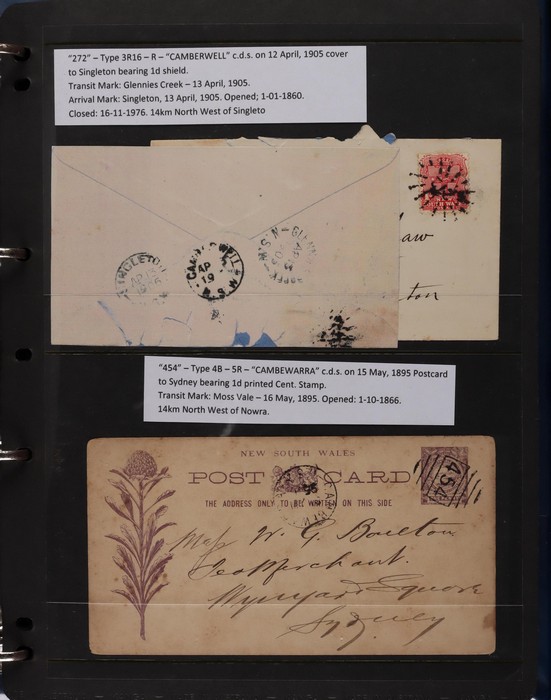 "272" – Type 3R16 – R – "CAMBERWELL" c.d.s. on 12 April, 1905 cover
to Singleton bearing 1d shield.
Transit Mark: Glennies Creek – 13 April, 1905.
Arrival Mark: Singleton, 13 April, 1905. Opened; 1-01-1860.
Closed: 16-11-1976. 14km North West of Singleto
aw
ton
SINGLETON
AP
CAMBERWELL
AP
19
N.S.W
"454" – Type 4B – 5R – "CAMBEWARRA" c.d.s. on 15 May, 1895 Postcard
to Sydney bearing 1d printed Cent. Stamp.
Transit Mark: Moss Vale – 16 May, 1895. Opened: 1-10-1866.
14km North West of Nowra.
NEW SOUTH WALES
POST CARD
454
THE ADDRESS ONLY TO BE WRITTEN ON THIS SIDE
95
Mess W. G. Boulton
Tea Merchant.
Wynyard Square
Sydney